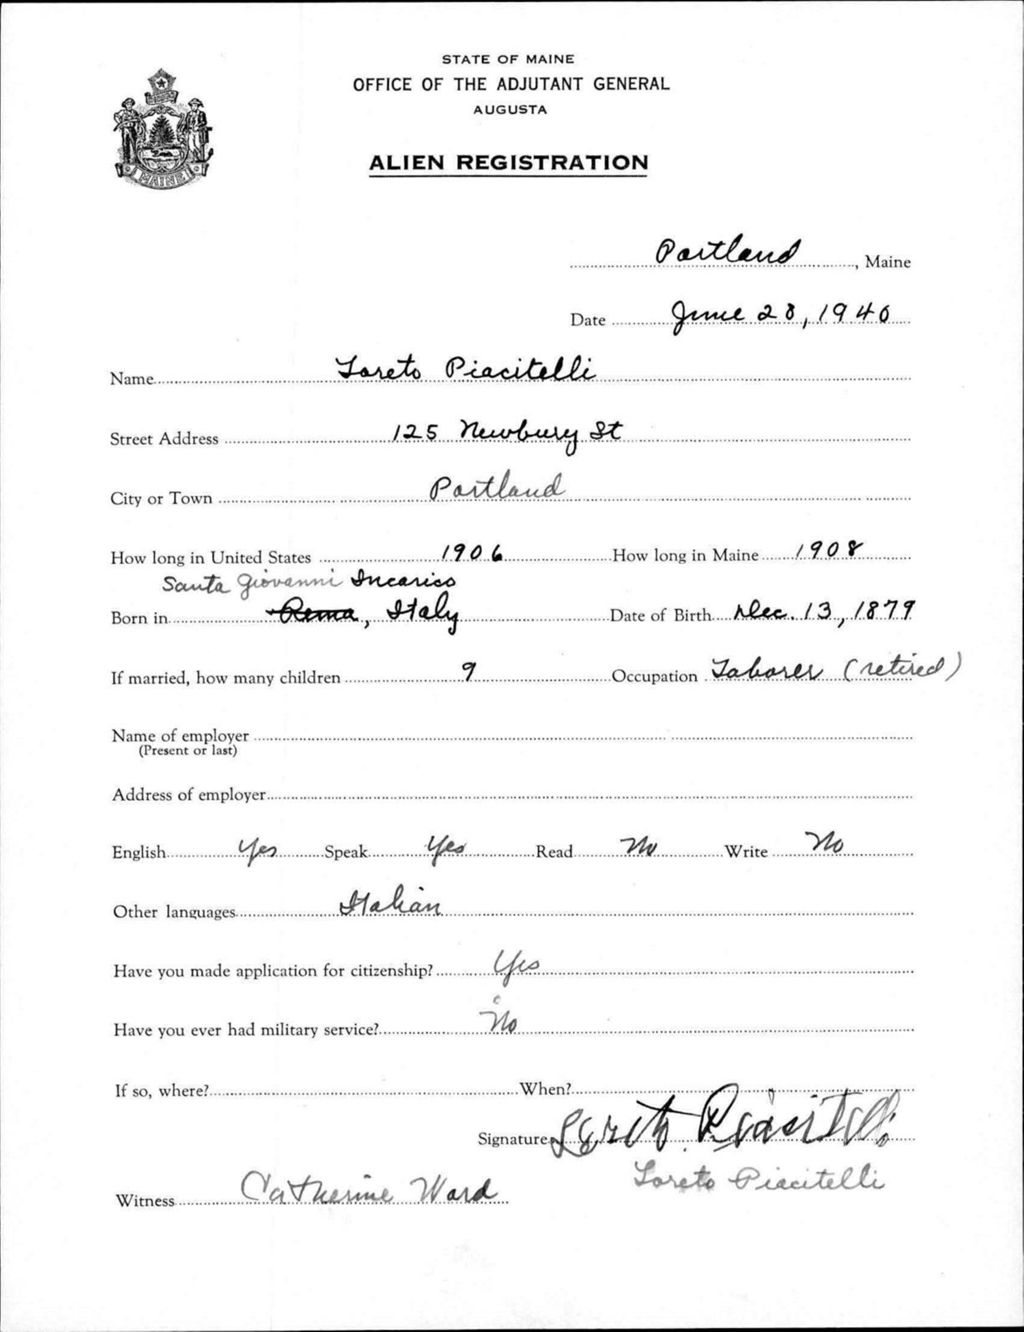 STATE OF MAINE
OFFICE OF THE ADJUTANT GENERAL
AUGUSTA
ALIEN REGISTRATION
MAINE
Portland, Maine
Date June 28, 1940
Name Loreto Piacitelli
Street Address 125 Newbury St
City or Town Portland
How long in United States 1906 How long in Maine 1908
Santa Giovanni Incarico
Born in Roma, Italy Date of Birth Dec. 13, 1879
If married, how many children 9 Occupation Laborer (retired)
Name of employer
(Present or last)
Address of employer
English Yes Speak Yes Read No Write No
Other languages Italian
Have you made application for citizenship? Yes
Have you ever had military service? No
If so, where? When?
Signature Loreto Piacitelli
Loreto Piacitelli
Witness Catherine Ward